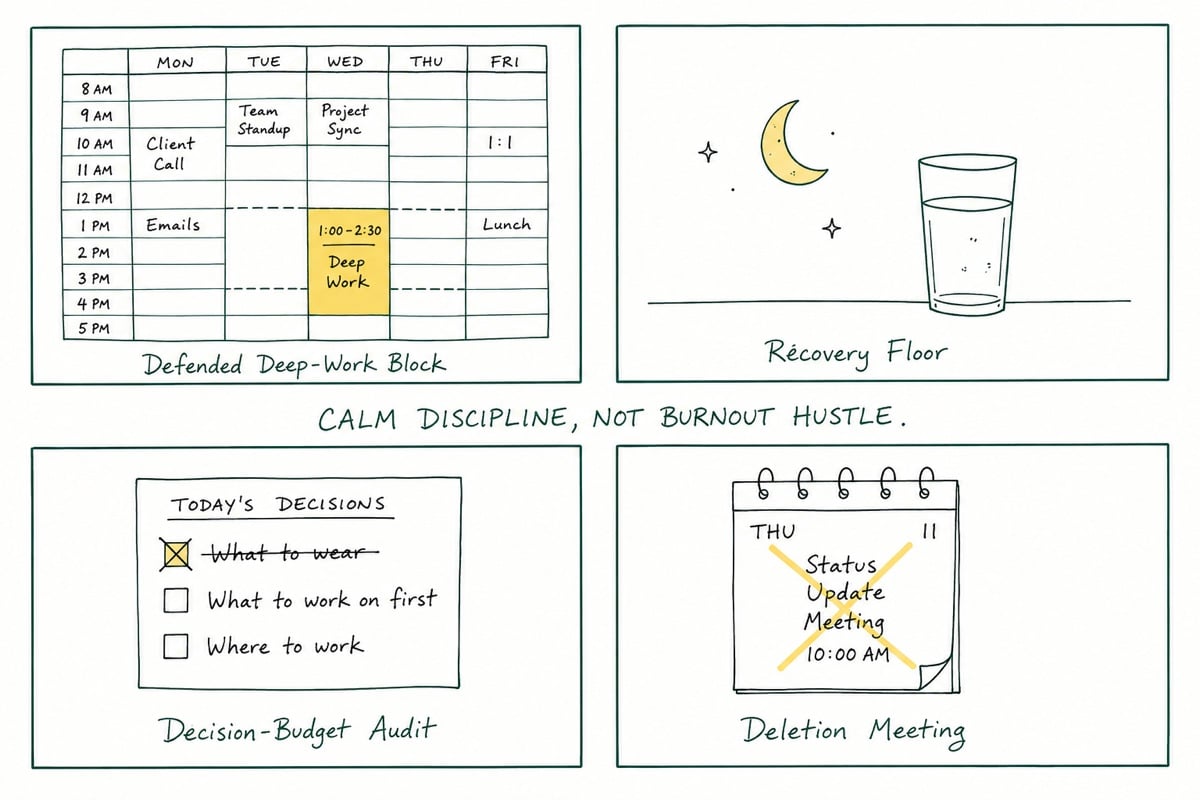 MON TUE WED THU FRI
8 AM
9 AM Team Standup Project Sync
10 AM Client Call 1:1
11 AM
12 PM
1 PM Emails 1:00-2:30 Lunch
2 PM Deep
3 PM Work
4 PM
5 PM
Defended Deep-Work Block
Récovery Floor
CALM DISCIPLINE, NOT BURNOUT HUSTLE.
TODAY'S DECISIONS
What to wear
What to work on first
Where to work
Decision-Budget Audit
THU 11
Status
Update
Meeting
10:00 AM
Deletion Meeting